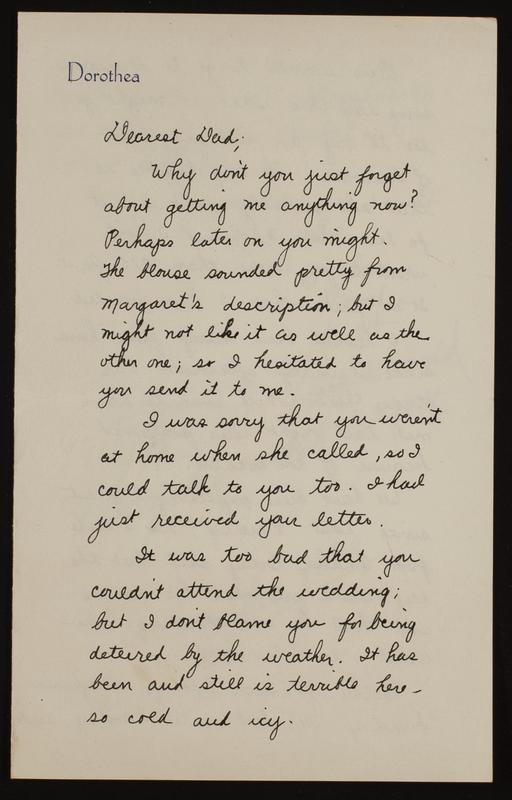 Dorothea
Dearest Dad;
Why don't you just forget
about getting me anything now?
Perhaps later on you might.
The blouse sounded pretty from
Margaret's description; but I
might not like it as well as the
other one; so I hesitated to have
you send it to me.
I was sorry that you weren't
at home when she called, so I
could talk to you too. I had
just received your letter.
It was too bad that you
couldn't attend the wedding;
but I don't blame you for being
deterred by the weather. It has
been and still is terrible here -
so cold and icy.